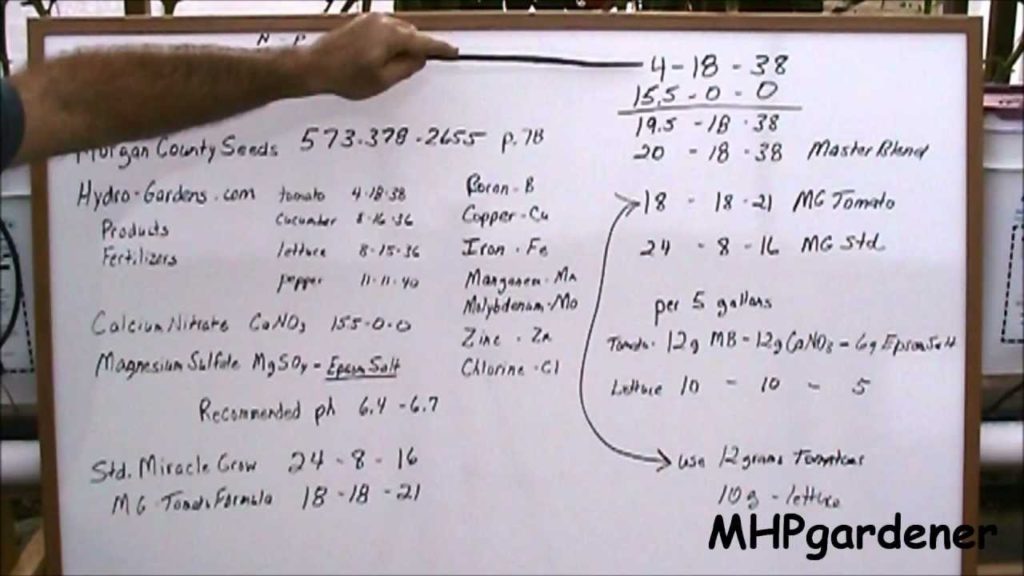 N - P
4-18-38
15.5-0-0
19.5-18-38
20-18-38 Master Blend
Morgan County Seeds 573-378-2655 p.78
Hydro-Gardens.com
Products
Fertilizers
tomato 4-18-38
Cucumber 8-16-36
lettuce 8-15-36
pepper 11-11-40
Boron-B
Copper-Cu
Iron-Fe
Manganese-Mn
Molybdenum-Mo
Zinc-Zn
Chlorine-Cl
18-18-21 MG Tomato
24-8-16 MG Std
Calcium Nitrate CaNO3 15.5-0-0
Magnesium Sulfate MgSO4-Epsom Salt
Recommended ph 6.4-6.7
per 5 gallons
Tomato-12g MB-12g CaNO3-6g Epsom Salt
Lettuce 10-10-5
Std. Miracle Grow 24-8-16
MG-Tomato Formula 18-18-21
use 12 grams Tomatoes
10g-lettuce
MHPgardener